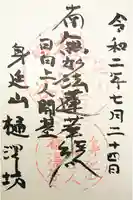 令和二年七月二十四日
南無妙法蓮華経
日向上人開基
身延山 樋澤坊